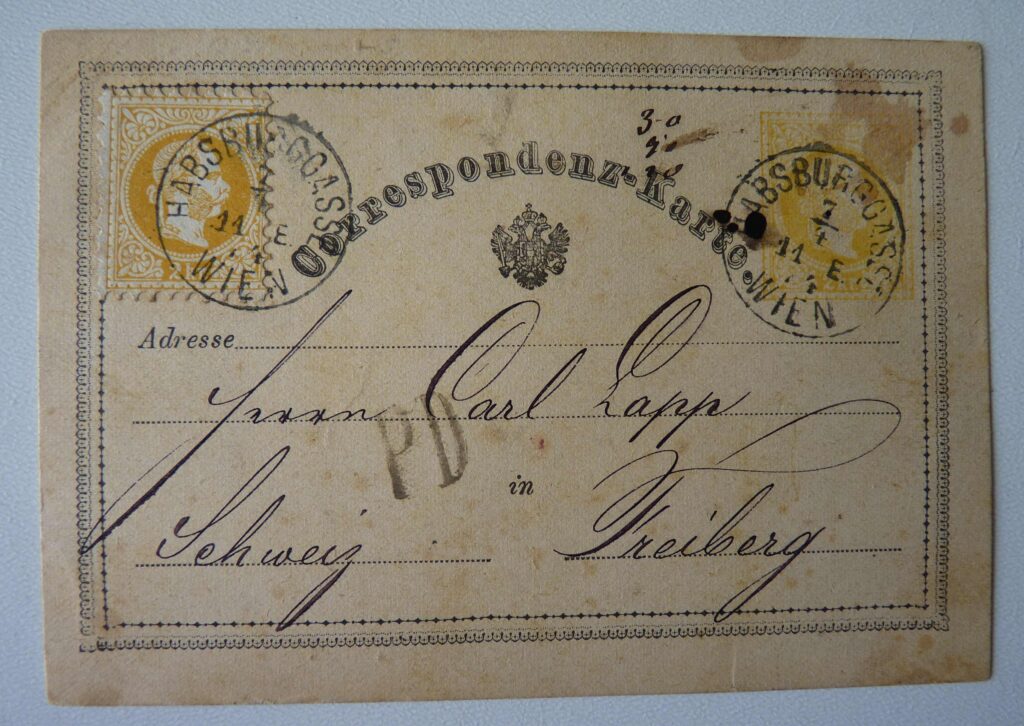 HABSBURGGASSE
11 E
WIEN
Correspondenz-Karte.
HABSBURGGASSE
7/4
11 E
WIEN
Adresse
Herrn Carl Lapp
PD
in
Schweiz Freiberg